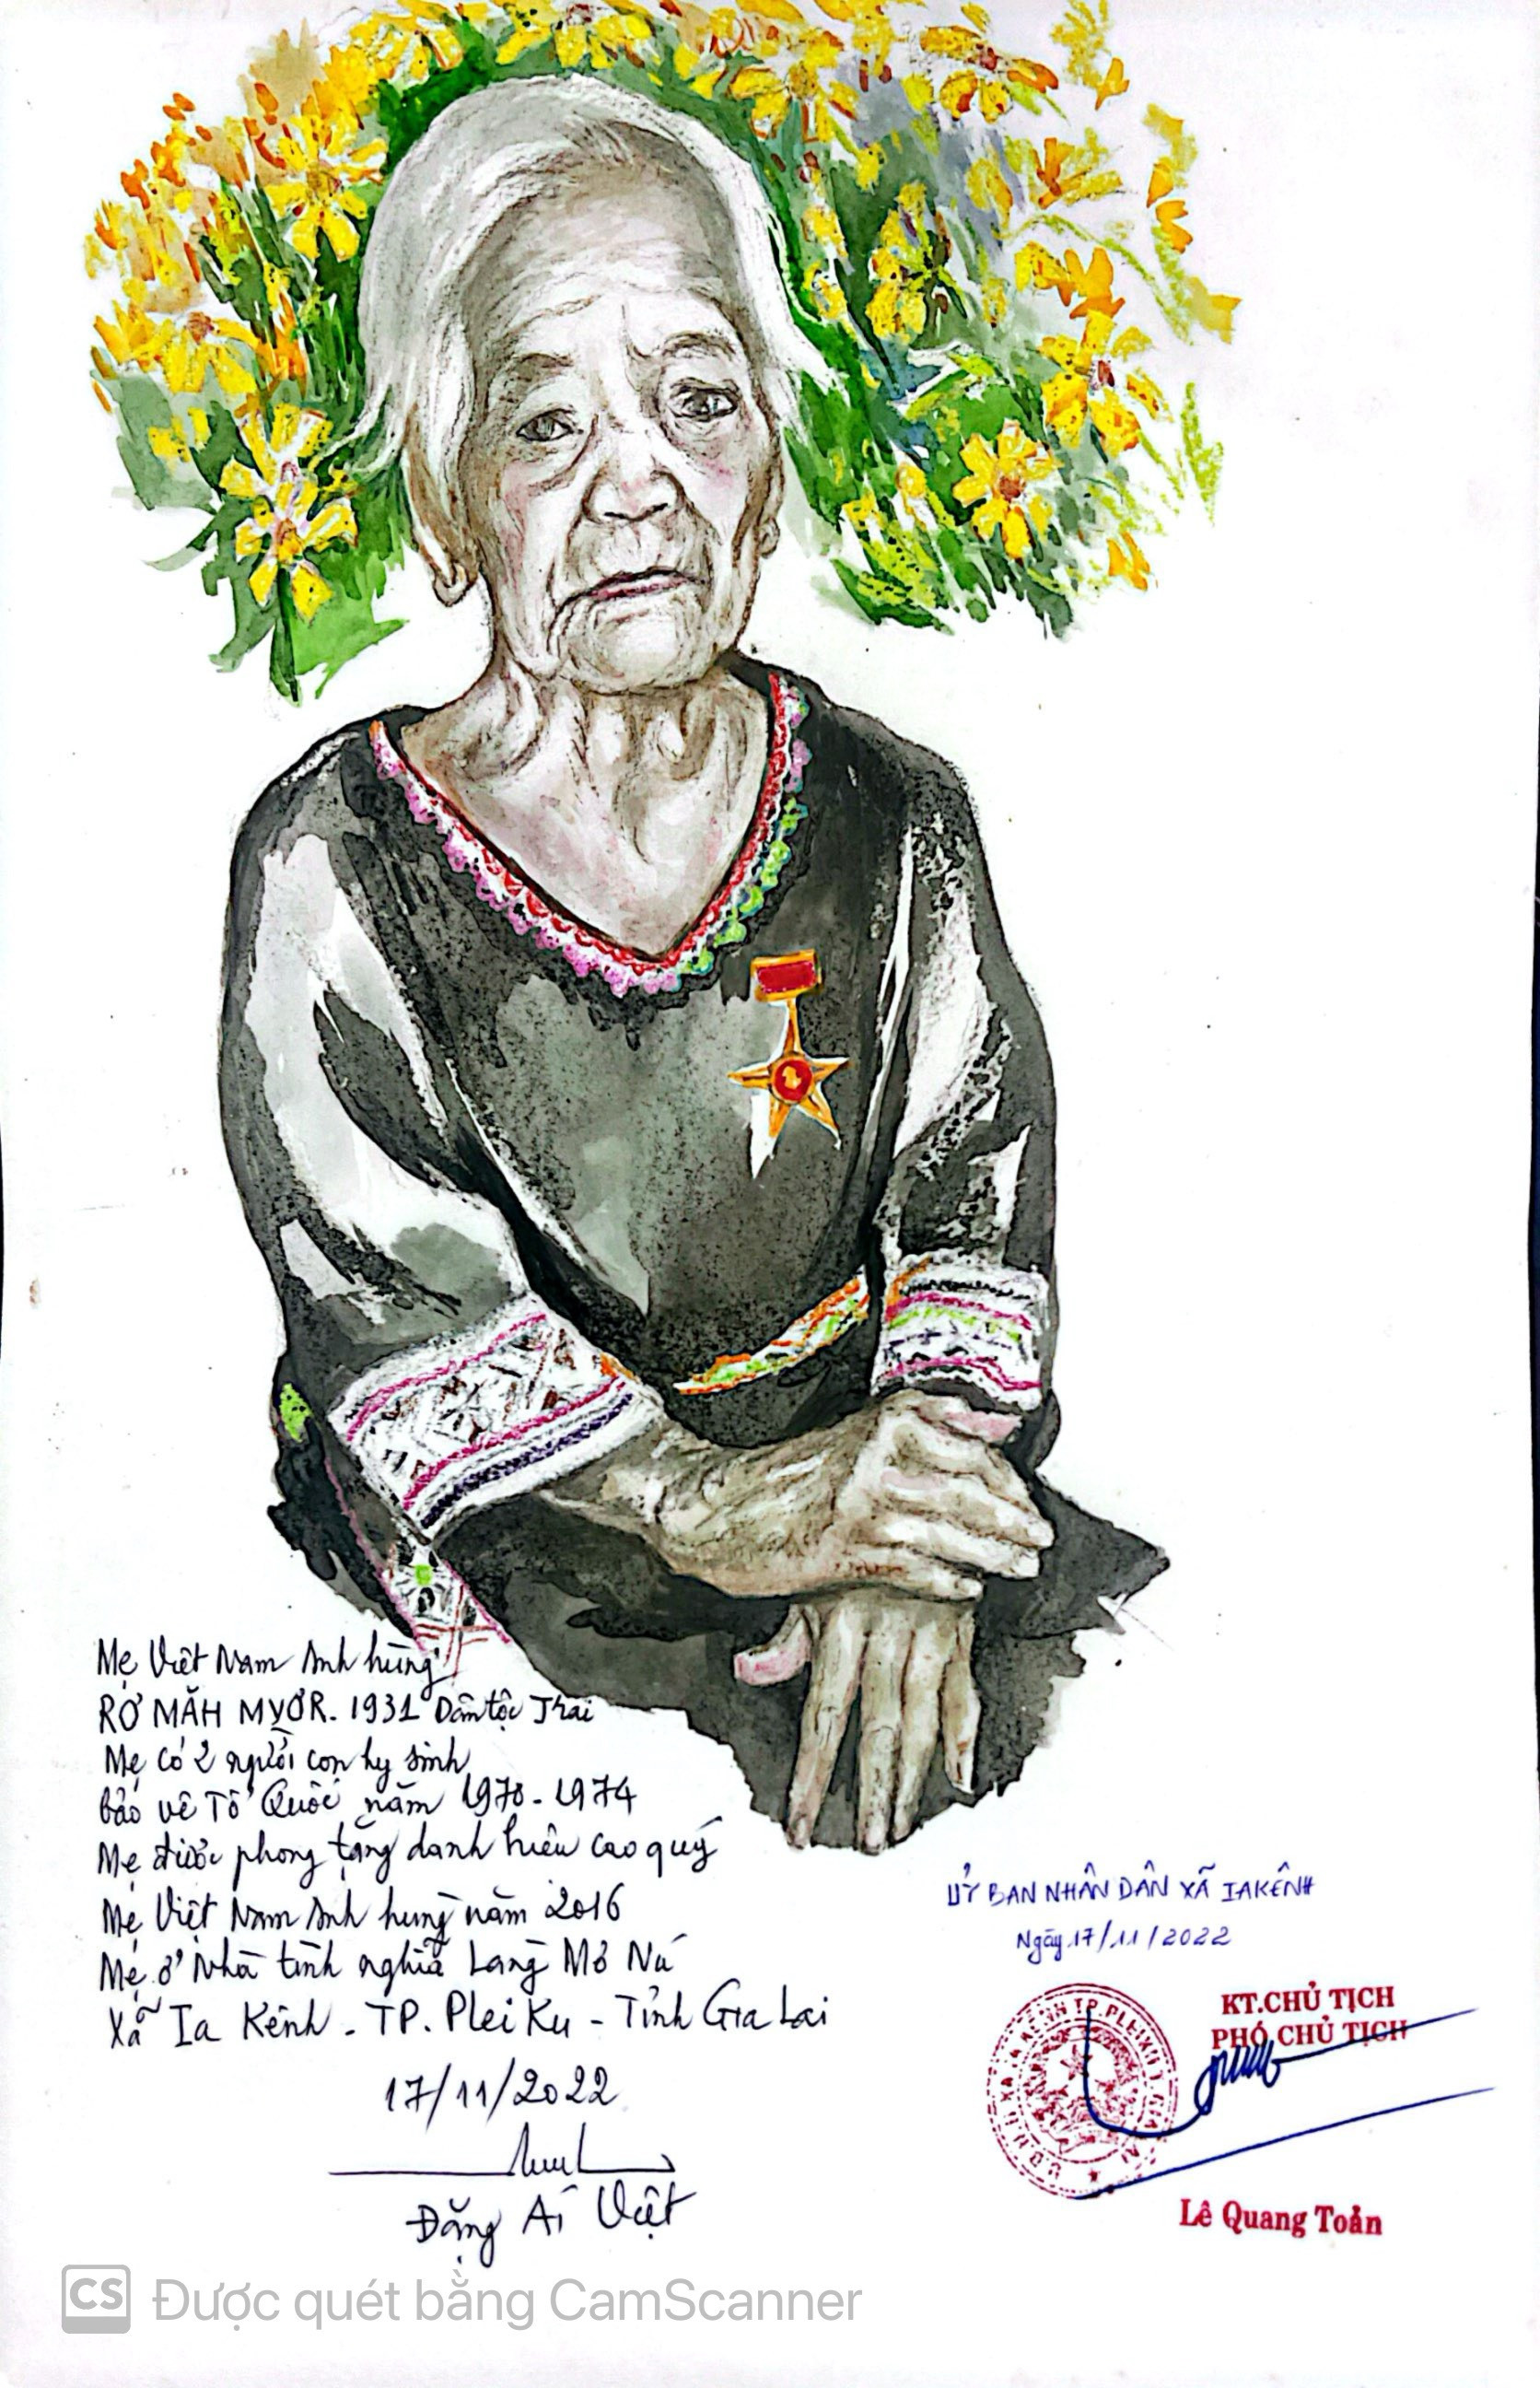 Mẹ Việt Nam Anh hùng
RƠ MĂH MYƠR. 1931 Dân tộc Jrai
Mẹ có 2 người con hy sinh
bảo vệ Tổ Quốc năm 1970 - 1974
Mẹ được phong tặng danh hiệu cao quý
Mẹ Việt Nam Anh hùng năm 2016
Mẹ ở Nhà tình nghĩa Làng Mơ Nú
Xã Ia Kênh - TP. PleiKu - Tỉnh Gia Lai
17/11/2022
Đặng Ái Việt
ỦY BAN NHÂN DÂN XÃ IAKÊNH
Ngày 17/11/2022
KT.CHỦ TỊCH
PHÓ CHỦ TỊCH
Lê Quang Toản
CS Được quét bằng CamScanner